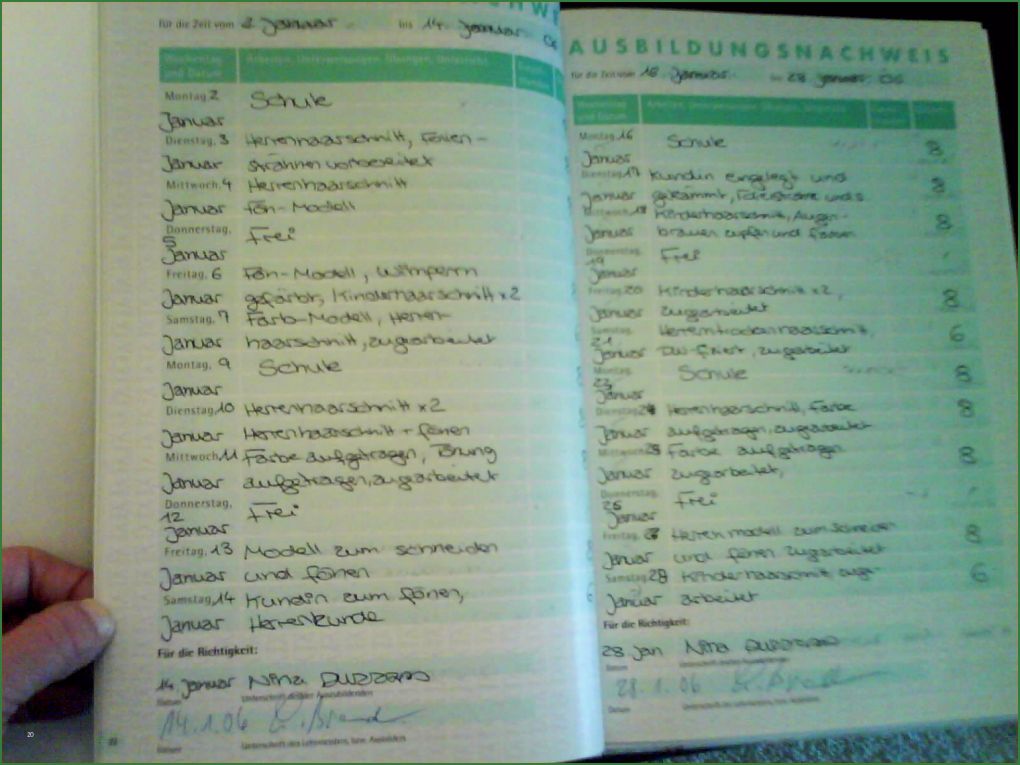 für die Zeit vom 2 Januar bis 14. Januar 06
Wochentag und Datum
Arbeiten, Unterweisungen, Übungen, Unterricht
Montag 2 Januar Schule
Dienstag, 3 Herrenhaarschnitt, Folien-
Januar strähnen vorbereitet
Mittwoch, 4 Herrenhaarschnitt
Januar fön-Modell
Donnerstag, 5 Januar Frei
Freitag, 6 Fön-Modell, Wimpern
Januar gefärbt, Kinderhaarschnitt x2
Samstag, 7 Farb-Modell, Herren-
Januar haarschnitt, zugearbeitet
Montag, 9 Januar Schule
Dienstag, 10 Herrenhaarschnitt x2
Januar Herrenhaarschnitt + fönen
Mittwoch 11 Farbe aufgetragen, Tönung
Januar aufgetragen, zugearbeitet
Donnerstag, 12 Januar Frei
Freitag, 13 Modell zum schneiden
Januar und fönen
Samstag, 14 Kundin zum fönen,
Januar Herrenkunde
Für die Richtigkeit:
14. Januar Nina
Datum
Unterschrift des/der Auszubildenden
14.1.06
Datum
Unterschrift des Lehrmeisters, bzw. Ausbilders
AUSBILDUNGSNACHWEIS
für die Zeit vom 16 Januar bis 28 Januar 06
Wochentag und Datum
Montag 16 Januar Schule 8
Dienstag 17 Kundin eingelegt und 8
Januar gekämmt,
Mittwoch 18 Kinderhaarschnitt, Augen- 8
Januar brauen zupfen und färben
Donnerstag, 19 Januar Frei
Freitag 20 Kinderhaarschnitt x2, 8
Januar zugearbeitet
Samstag, 21 Herrentrockenhaarschnitt, 6
Januar zugearbeitet
Montag, 23 Januar Schule 8
Dienstag 24 Herrenhaarschnitt, Farbe 8
Januar aufgetragen, zugearbeitet
Mittwoch 25 Farbe aufgetragen 8
Januar zugearbeitet,
Donnerstag, 26 Januar Frei
Freitag, Herrenmodell zum schneiden 8
Januar und fönen zugearbeitet
Samstag 28 Kinderhaarschnitt zuge- 6
Januar arbeitet
Für die Richtigkeit:
28 Jan Nina
Datum
28.1.06
Datum
20